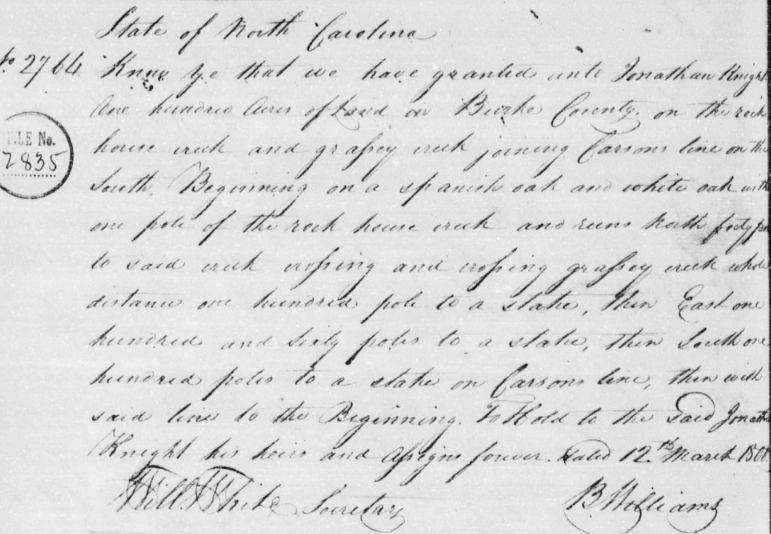 State of North Carolina
No 2764 Know Ye that we have granted unto Jonathan Knight
One hundred Acres of Land in Burke County, on the rock
house creek and grassey creek joining Carsons line on the
South, Beginning on a spanish oak and white oak with
one pole of the rock house creek and runs North forty
to said creek crossing and crossing grassey creek whole
distance one hundred pole to a stake, then East one
hundred and sixty poles to a stake, then South one
hundred poles to a stake on Carsons line, then with
said line to the Beginning. To Hold to the said Jonathan
Knight his heirs and assigns forever. Dated 12th March 1801
Will White Secretary B Williams
FILE No.
2835